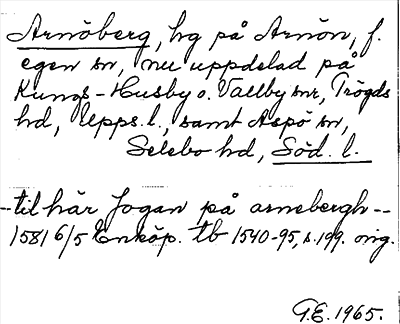 Arnöberg, hg på Arnön, f.
egen sn, nu uppdelad på
Kungs-Husby o. Vallby snr, Trögds
hd, Upps. l., samt Aspö sn,
Selebo hd, Söd. l.
--til här Jogan på arnebergh--
1581 6/5 Enköp. tb 1540-95, s. 199. orig.
G.E. 1965.